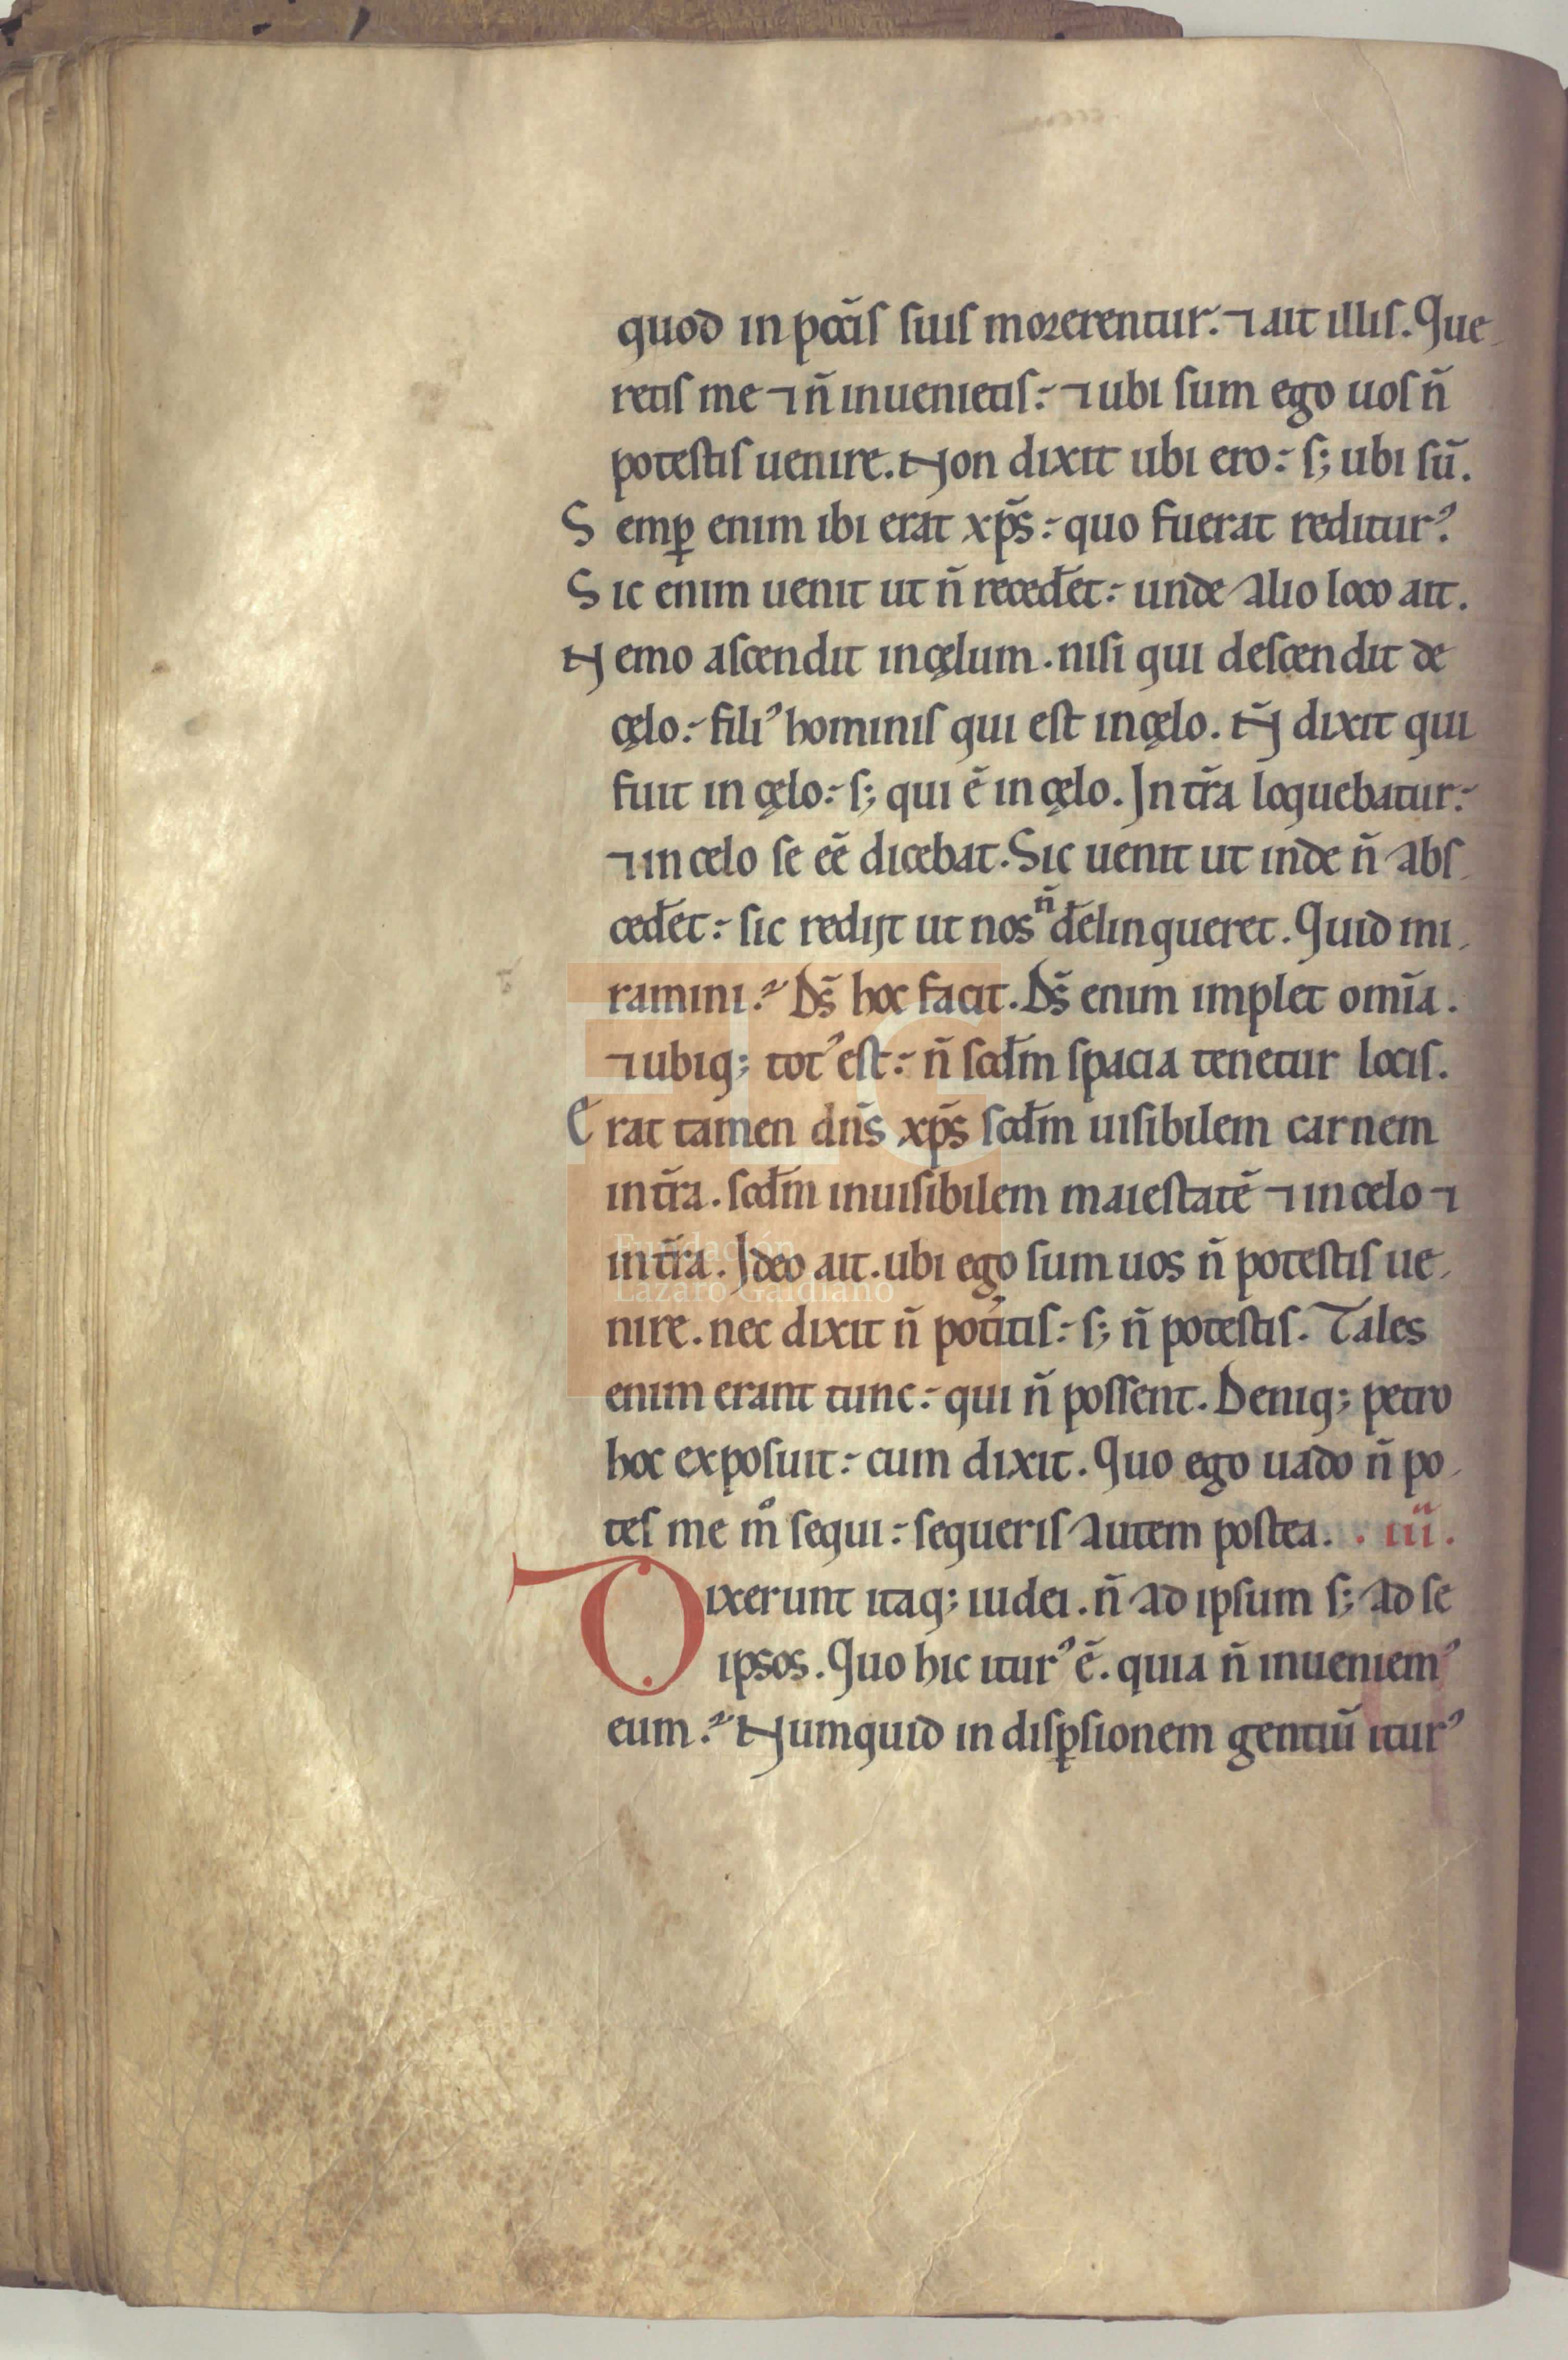 quod in pcc̄is ſuiſ morerentur. ⁊ ait illiſ. Que-
retiſ me ⁊ n̄ inuenietiſ: ⁊ ubi ſum ego uoſ n̄
poteſtiſ uenire. Non dixit ubi ero: ſ; ubi ſū.
Semꝑ enim ibi erat xp̄s: quo fuerat rediturꝰ
Sic enim uenit ut n̄ recedēt: unde alio loco ait.
Nemo aſcendit in cęlum. niſi qui deſcendit de
cęlo: filiꝰ hominiſ qui eſt in cęlo. N̄ dixit qui
fuit in cęlo: ſ; qui ē in cęlo. In tr̄a loquebatur:
⁊ in celo ſe eē dicebat. Sic uenit ut inde n̄ abſ-
cedēt: ſic redijt ut nos n̄ dēlinqueret. Quid mi-
ramini? Ds̄ hoc facit. Ds̄ enim implet om̄ia.
⁊ ubiq; totꝰ eſt: n̄ ſcd̄m ſpacia tenetur lociſ.
Erat tamen dn̄s xp̄s ſcd̄m uiſibilem carnem
in tr̄a. ſcd̄m inuiſibilem maieſtatē ⁊ in celo ⁊
in tr̄a. Ideo ait. ubi ego ſum uos n̄ poteſtiſ ue-
nire. nec dixit n̄ pot̓itiſ: ſ; n̄ poteſtiſ. Tales
enim erant tunc: qui n̄ poſſent. Deniq; petro
hoc expoſuit: cum dixit. Quo ego uado n̄ po-
teſ me mͦ ſequi: ſequeriſ autem poſtea. . iii.
Dixerunt itaq; iudei. n̄ ad ipſum ſ; ad ſe
ipsos. Quo hic iturꝰ ē. quia n̄ inueniemꝰ
eum? Numquid in diſꝑſionem gentiū iturꝰ
FLG
Fundación
Lázaro Galdiano